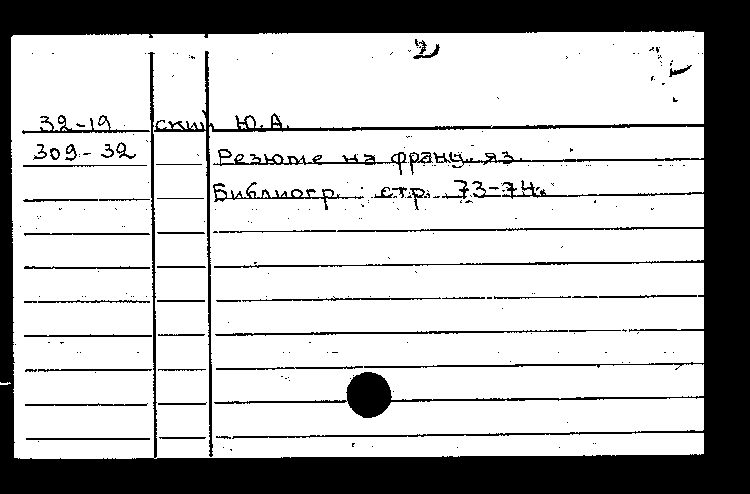 2
32-19 ский Ю.А.
309-32 Резюме на франц. яз.
Библиогр.: стр. 73-74.